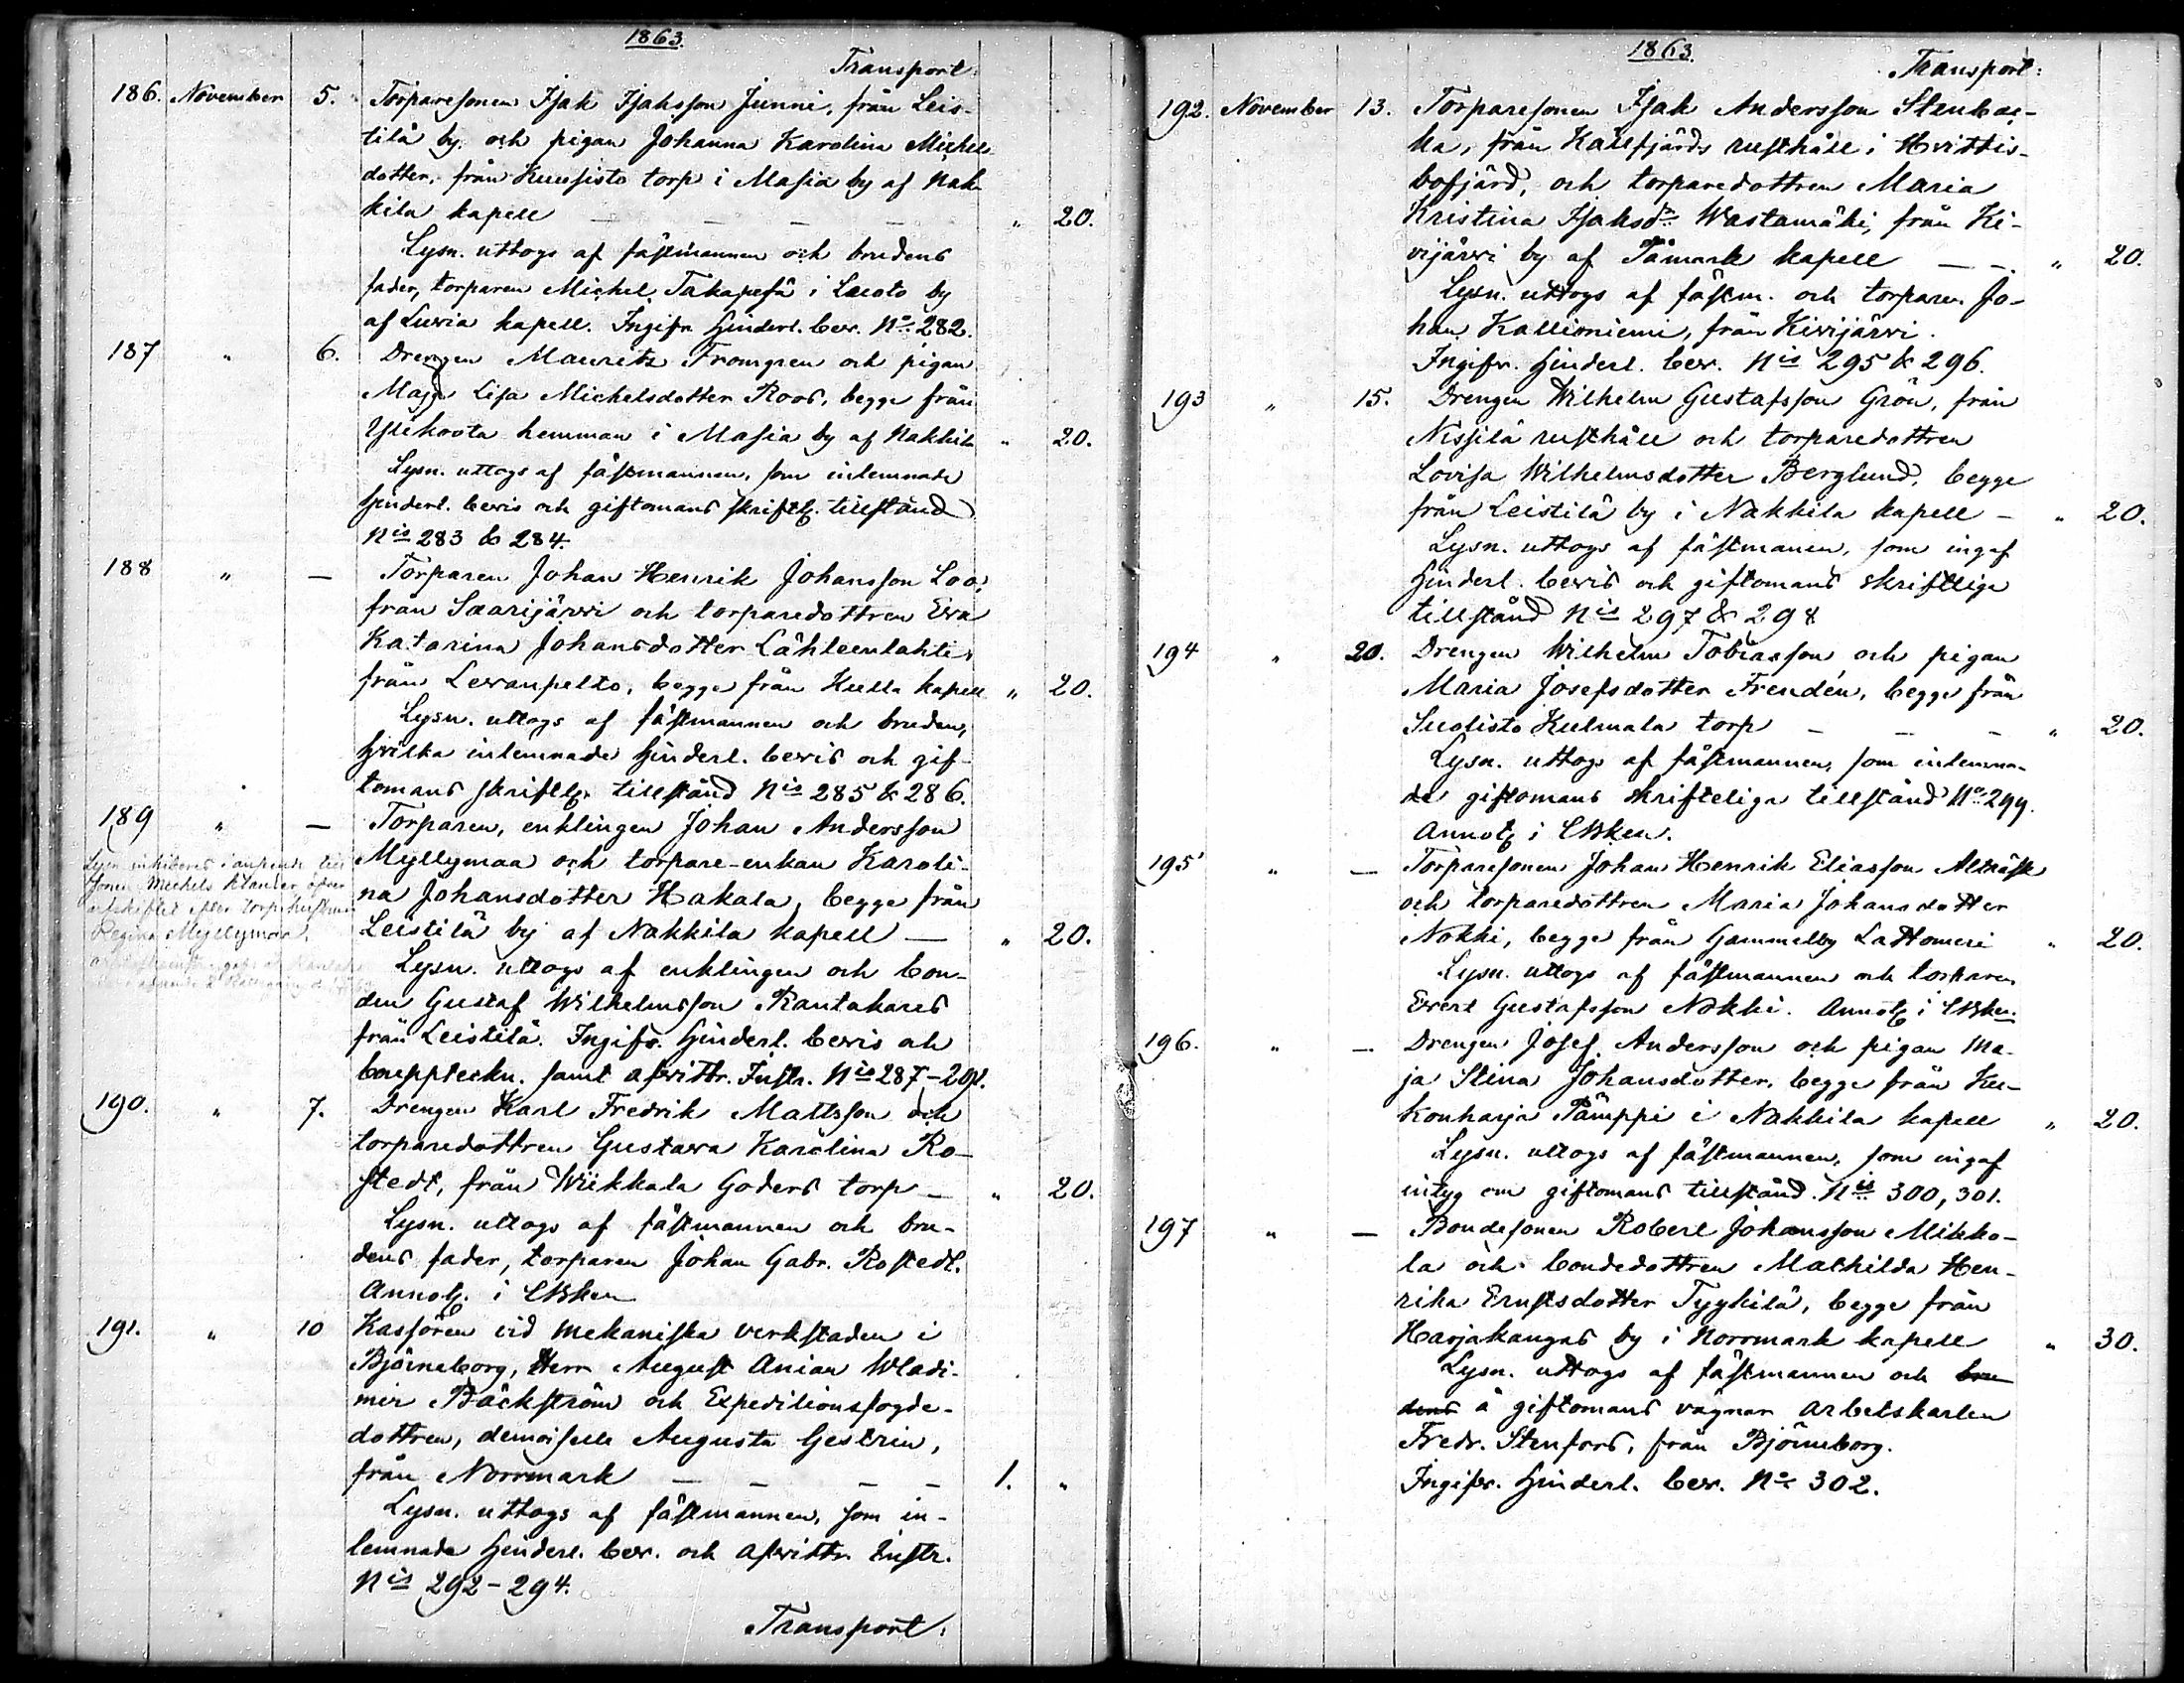 1863.
Transport:
186. November 5. Torparesonen Isak Isaksson Junni, från Leis-
tilä by och pigan Johanna Karolina Michels
dotter, från Kuusisto torp i Masia by af Nak-
kila kapell — — — — " 20.
Lysn. uttogs af fästmannen och brudens
fader, torparen Michel Takapesä i Luoto by
af Luvia kapell. Ingifv. hinderl. bev. No 282.
187 " 6. Drengen Mauritz Fromgren och pigan
Maja Lisa Michelsdotter Roos, begge från
Ylikoota hemman i Masia by af Nakkila " 20.
Lysn. uttogs af fästmannen, som inlemnade
hinderl. bevis och giftomans skriftlg. tillstånd
Nis 283 & 284.
188 " — Torparen Johan Henrik Johansson Loo,
från Saarijärvi och torparedottren Eva
Katarina Johansdotter Lähteenlahti
från Levanpelto, begge från Kulla kapell " 20.
Lysn. uttogs af fästmannen och bruden,
hvilka inlemnade hinderl. bevis och gif-
tomans skriftlg. tillstånd Nis 285 & 286.
189 " — Torparen, enklingen Johan Andersson
Myllymaa och torpare-enkan Karoli-
na Johansdotter Hakala, begge från
Leistilä by af Nakkila kapell — " 20.
Lysn. uttogs af enklingen och bon-
den Gustaf Wilhelmsson Rantakares
från Leistilä. Ingifv. hinderl. bevis och
bouppteckn. samt afvittr. Instr. Nis 287-291.
Lysn. inhiberes
Regina Myllymaa.
190. " 7. Drengen Karl Fredrik Mattsson och
torparedottren Gustava Karolina Ro-
stedt, från Wiikkala Goders torp — " 20.
Lysn. uttogs af fästmannen och bru-
dens fader, torparen Johan Gabr. Rostedt.
Annotg. i CBken
191. " 10 Kassören vid mekaniska verkstaden i
Björneborg, Herr August Anian Wladi-
mir Bäckström och Expeditionsfogde-
dottren, demoiselle Augusta Gestrin,
från Norrmark — — — — 1. "
Lysn. uttogs af fästmannen, som in-
lemnade hinderl. bev. och afvittr. Instr.
Nis 292-294.
Transport.
1863.
Transport:
192. November 13. Torparesonen Isak Andersson Stenbac-
ka, från Kallfjärds rusthåll i Hvittis-
bofjärd, och torparedottren Maria
Kristina Isaksdr Wastamäki, från Ki-
vijärvi by af Påmark kapell — — " 20.
Lysn. uttogs af fästm. och torparen Jo-
han Kallioniemi, från Kivijärvi.
Ingifv. hinderl. bev. Nis 295 & 296.
193 " 15. Drengen Wilhelm Gustafsson Grön, från
Nissilä rusthåll och torparedottren
Lovisa Wilhelmsdotter Berglund, begge
från Leistilä by i Nakkila kapell — " 20.
Lysn. uttogs af fästmannen, som ingaf
hinderl. bevis och giftomans skriftliga
tillstånd Nis 297 & 298
194 " 20. Drengen Wilhelm Tobiasson och pigan
Maria Josefsdotter Frendén, begge från
Suolisto Kulmala torp — — — " 20.
Lysn. uttogs af fästmannen, som inlemna-
de giftomans skrifteliga tillstånd No 299.
Annotg i CBken.
195 " — Torparesonen Johan Henrik Eliasson Alträsk
och torparedottren Maria Johansdotter
Nokki, begge från Gammelby Lattomeri " 20.
Lysn. uttogs af fästmannen och torparen
Evert Gustafsson Nokki. Annotg i CBken.
196. " — Drengen Josef Andersson och pigan Ma-
ja Stina Johansdotter, begge från Ku-
konharja Pämppi i Nakkila kapell " 20.
Lysn. uttogs af fästmannen, som ingaf
intyg om giftomans tillstånd. Nis 300, 301.
197 " — Bondesonen Robert Johansson Mikko-
la och bondedottren Mathilda Hen-
rika Ernstsdotter Tyykilä, begge från
Harjakangas by i Norrmark kapell " 30.
Lysn. uttogs af fästmannen och bru-
dens å giftomans vägnar arbetskarlen
Fredr. Stenfors, från Björneborg.
Ingifv. hinderl. bev. No 302.